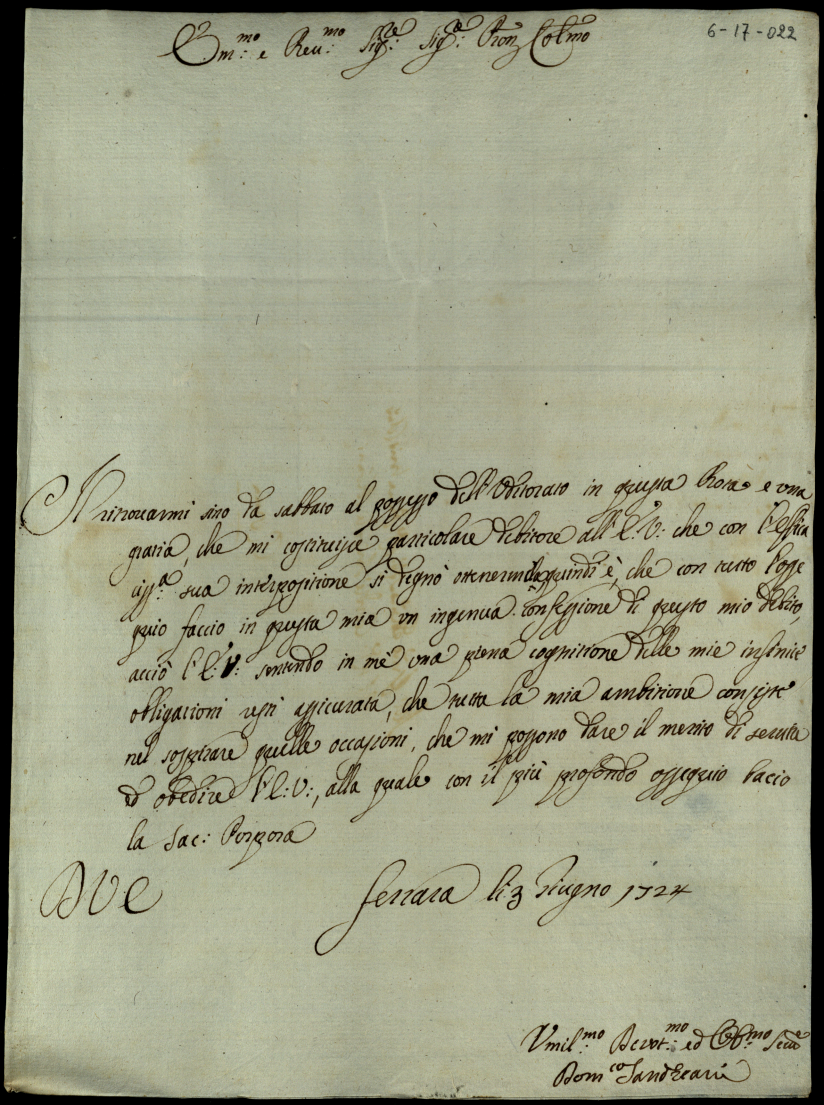 6-17-022
Em:mo e Reu:mo Sig:re Sig:e Pron Colmo
Il ritrouarmi sino da sabbato al possesso dell'Vditorato in questa Rota e vna
gratia, che mi costituisce particolare debitore all'E: V: che con l'effica
ciss:a sua interpositione si degnò ottenermela, quindi è, che con tutto l'osse
quio faccio in questa mia vn ingenua confessione di questo mio debito,
acciò l'E: V: sentendo in mè vna piena cognitione delle mie infinite
obligationi resti assicurata, che tutta la mia ambitione consiste
nel sospirare quelle occasioni, che mi possono dare il merito di seruire
ed obedire l'E: V:, alla quale con il più profondo ossequio bacio
la Sac: Porpora
DVE
Ferrara li 3 Giugno 1724
Vmil:mo Deuot:mo ed Obb:mo Seru
Dom:co